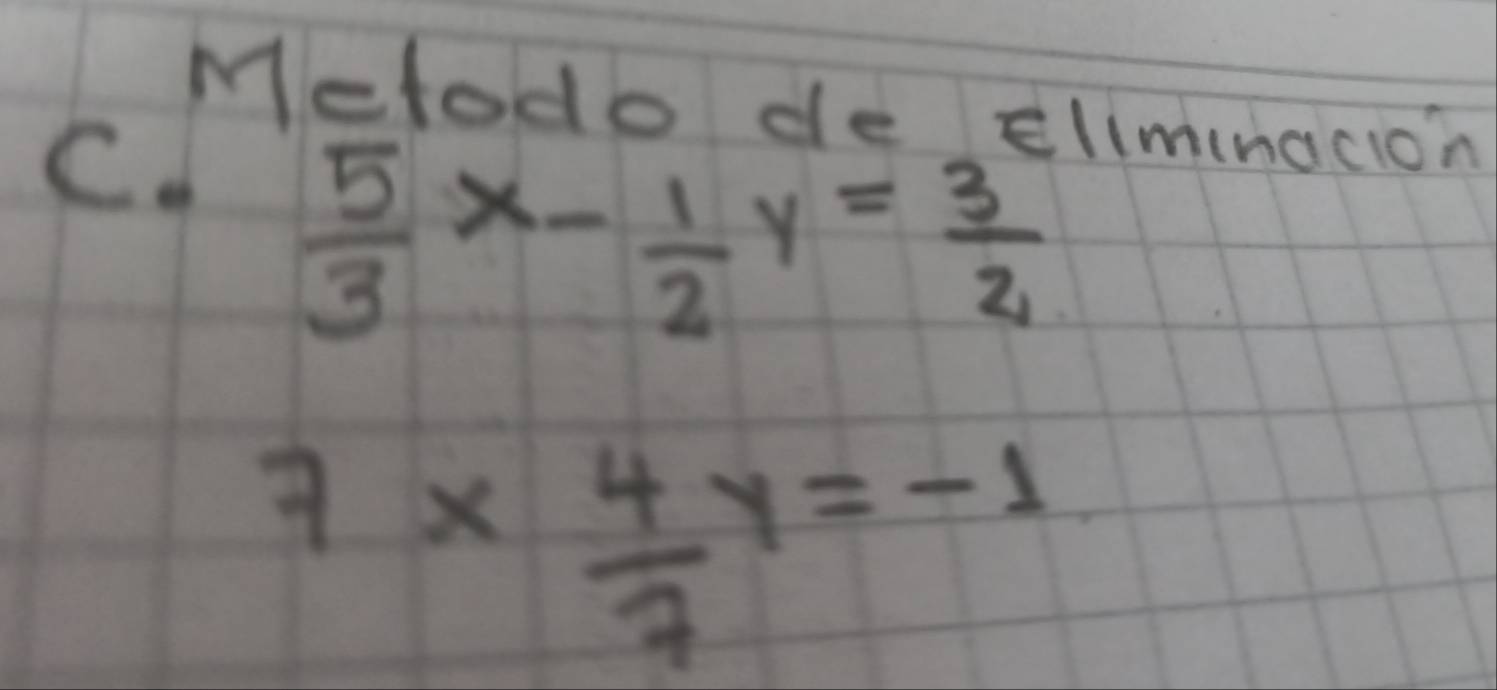 Metodo de Eliminación
C. 5/3 x - 1/2 y = 3/2
7 x 4/7 y = -1